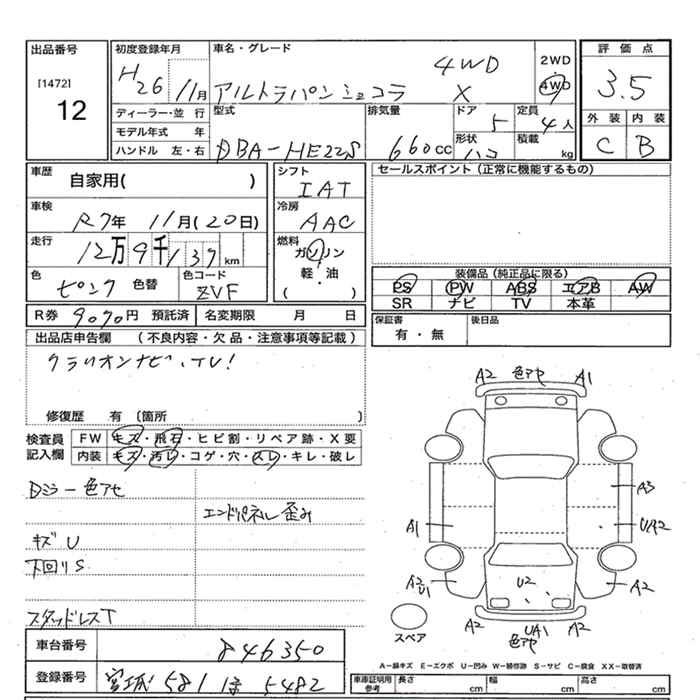 出品番号 初度登録年月 車名・グレード 2WD 評価点
[1472] H26 11月 アルトラパンショコラ 4WD X 4WD 3.5
12 ディーラー・並行 型式 排気量 ドア 定員 外装 内装
モデル年式 年 5 4人 C B
ハンドル 左・右 DBA-HE22S 660cc 形状 ハコ 積載 kg
車歴 自家用( ) シフト IAT セールスポイント(正常に機能するもの)
車検 R7年 11月(20日) 冷房 AAC
走行 12万9千137km 燃料 ガソリン・軽・油 ( )
装備品(純正品に限る)
PS PW ABS エアB AW
SR ナビ TV 本革
色 ピンク 色替 色コード ZVF
R券 9070円 預託済 名変期限 月 日
保証書 有・無 後日品
出品店申告欄 (不良内容・欠品・注意事項等記載)
クラリオンナビ、TV!
修復歴 有 (箇所 )
検査員記入欄 FW キズ・飛石・ヒビ割・リペア跡・X要
内装 キズ・汚レ・コゲ・穴・スレ・キレ・破レ
Dミラー色アセ
エンドパネル歪み
キズU
下回りS
スタッドレスT
A2 色アセ A1
A3
A1 UA2
A2 U1 U2 A2
A2 UA1 A2
色アセ
スペア
A-線キズ E-エクボ U-凹み W-補修跡 S-サビ C-腐食 XX-取替済
車台番号 846350
登録番号 宮城 581 5482
車庫証明用参考 長さ cm 幅 cm 高さ cm